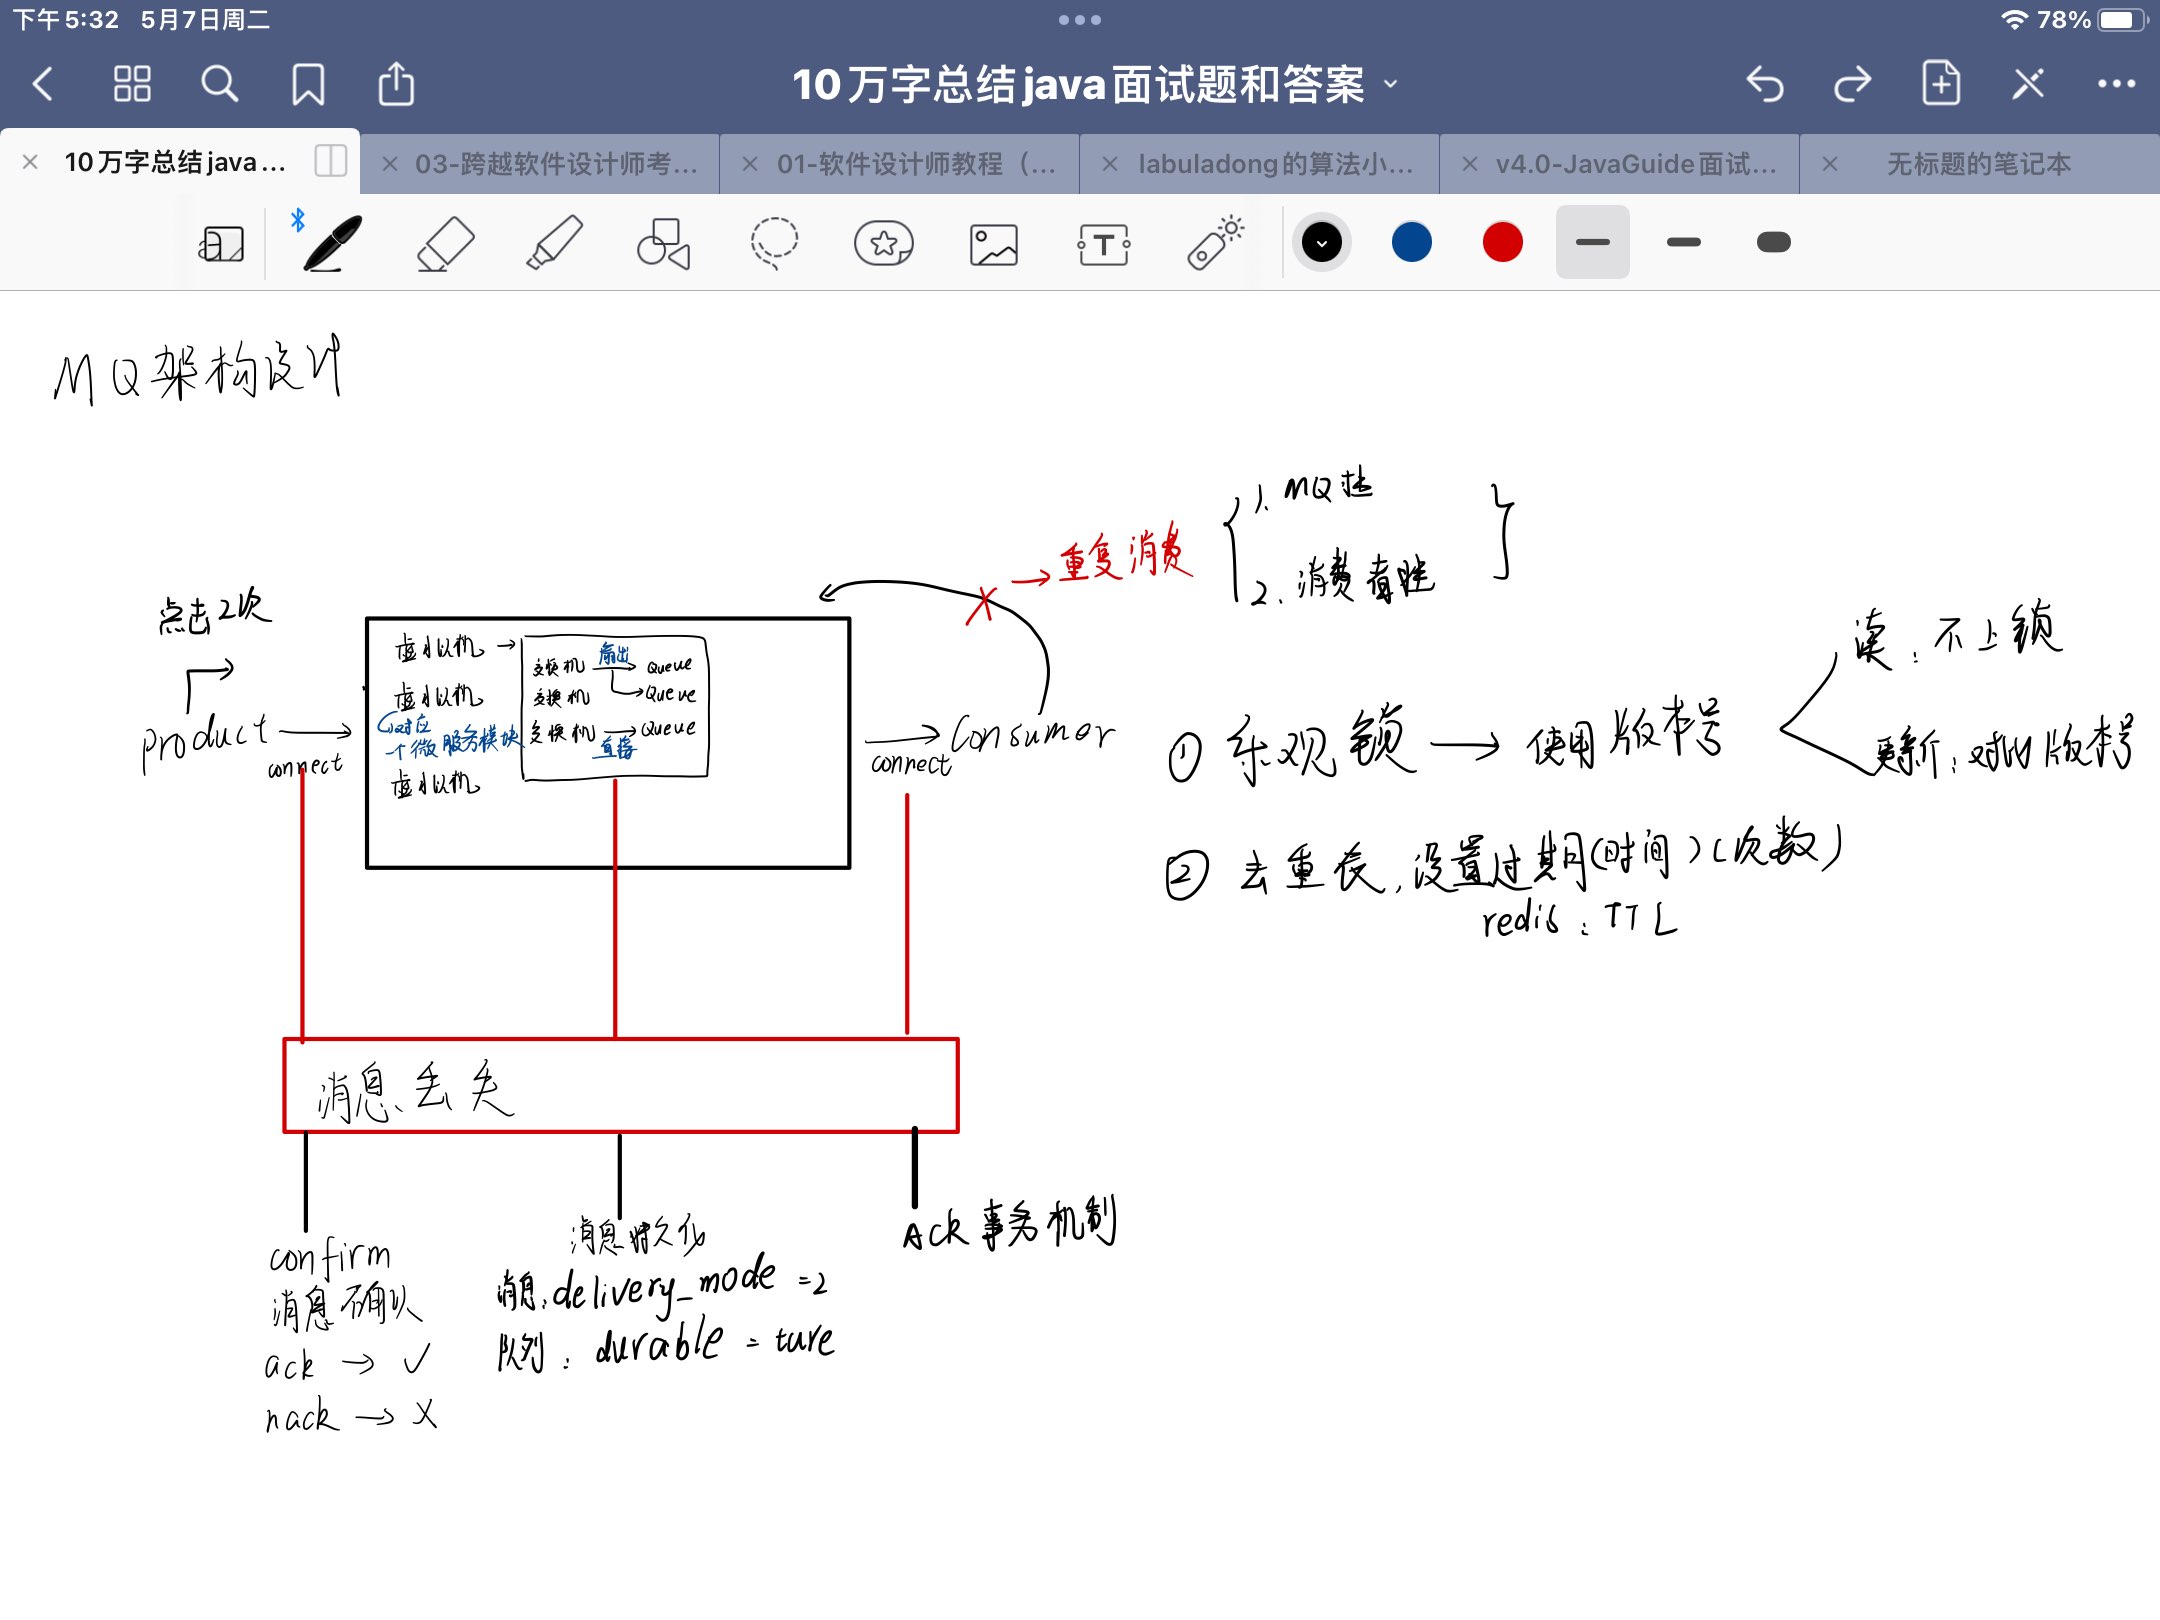 下午5:32 5月7日周二
78%
10万字总结java面试题和答案
10万字总结java...
03-跨越软件设计师考...
01-软件设计师教程（...
labuladong的算法小...
v4.0-JavaGuide面试...
无标题的笔记本
MQ架构设计
1. MQ挂
2. 消费者挂
重复消费
点击2次
product
connect
虚拟机
虚拟机
对应
一个微服务模块
虚拟机
交换机 扇出 Queue
交换机 Queue
交换机 Queue
直接
connect
Consumer
① 乐观锁 → 使用版本号
读：不上锁
更新：对比版本号
② 去重表，设置过期(时间)(次数)
redis：TTL
消息丢失
confirm
消息确认
ack → ✓
nack → X
消息持久化
消息：delivery_mode =2
队列：durable = ture
Ack事务机制